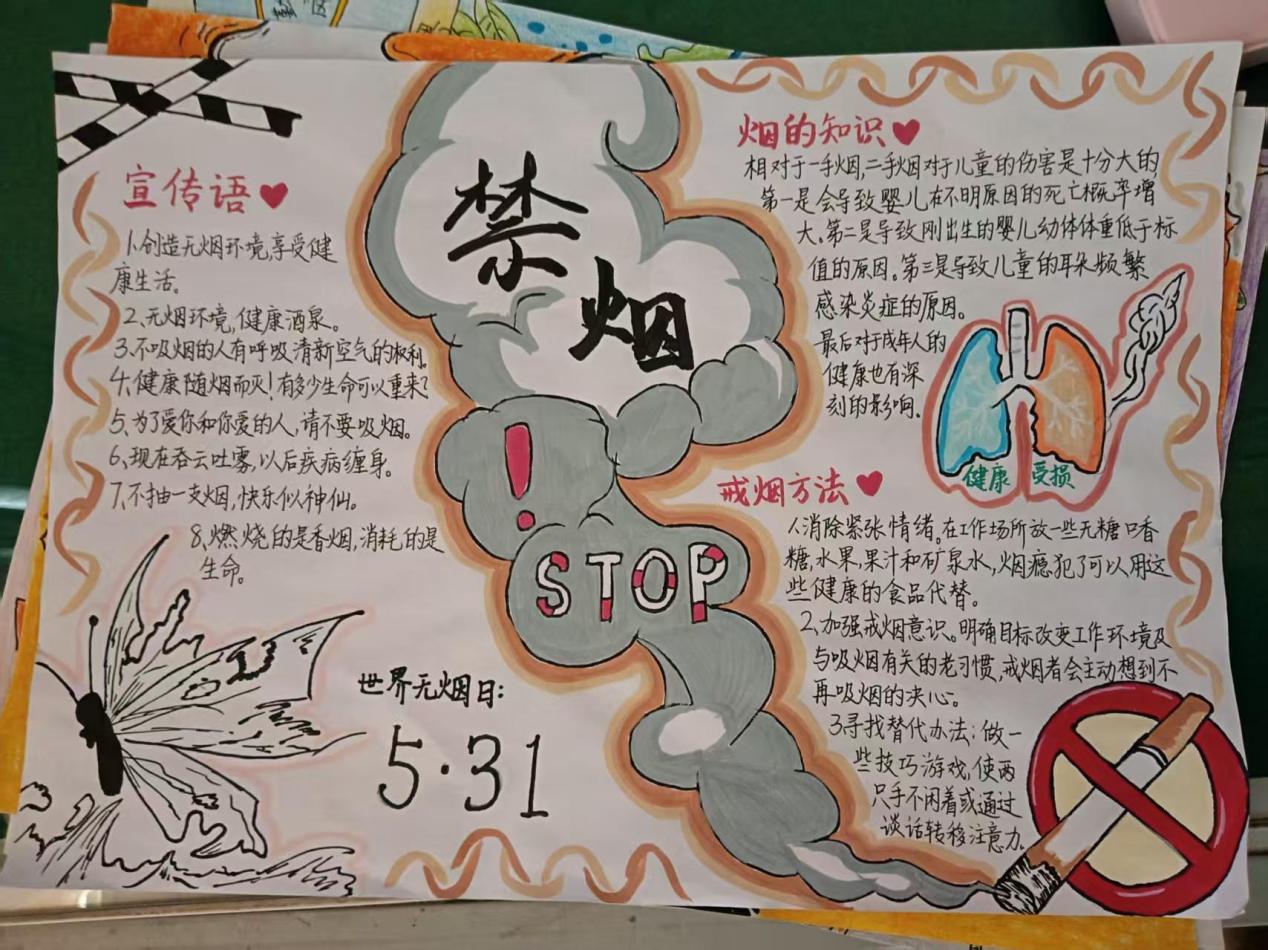 禁
烟
!
STOP
宣传语
1.创造无烟环境,享受健
康生活。
2、无烟环境,健康酒泉。
3.不吸烟的人有呼吸清新空气的权利。
4、健康随烟而灭!有多少生命可以重来?
5、为了爱你和你爱的人,请不要吸烟。
6、现在吞云吐雾,以后疾病缠身。
7、不抽一支烟,快乐似神仙。
8、燃烧的是香烟,消耗的是
生命。
世界无烟日:
5·31
烟的知识
相对于一手烟,二手烟对于儿童的伤害是十分大的
第一是会导致婴儿在不明原因的死亡概率增
大。第二是导致刚出生的婴儿幼体体重低于标
值的原因。第三是导致儿童的耳朵频繁
感染炎症的原因。
最后对于成年人的
健康也有深
刻的影响.
健康 受损
戒烟方法
1.消除紧张情绪。在工作场所放一些无糖口香
糖,水果,果汁和矿泉水,烟瘾犯了可以用这
些健康的食品代替。
2、加强戒烟意识。明确目标改变工作环境及
与吸烟有关的老习惯,戒烟者会主动想到不
再吸烟的决心。
3寻找替代办法:做一
些技巧游戏,使两
只手不闲着或通过
谈话转移注意力。